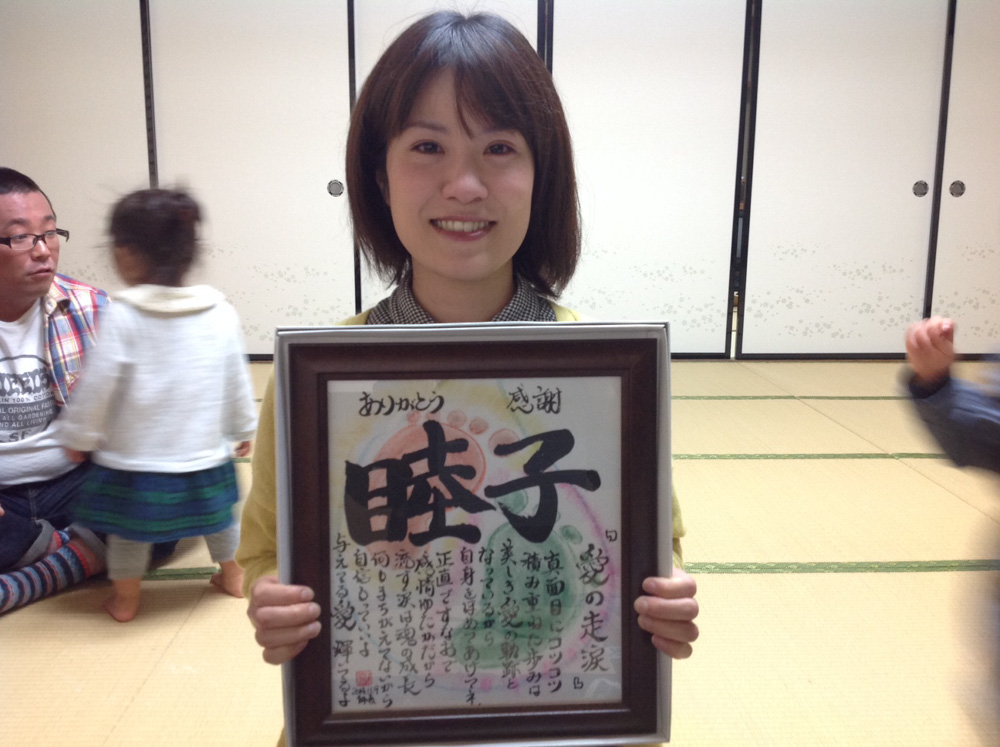 ありがとう 感謝
睦子
『愛の走涙』
真面目にコツコツ
積み重ねた歩みは
美しき愛の軌跡と
なっているから
自身をほめてあげてネ
正直ですなおで
感情ゆたかだから
流す涙は魂の成長
何もまちがえてないから
自信もっていいよ
与えてる愛 輝いてるよ
IN 100% CO
AL ORIGINAL FA